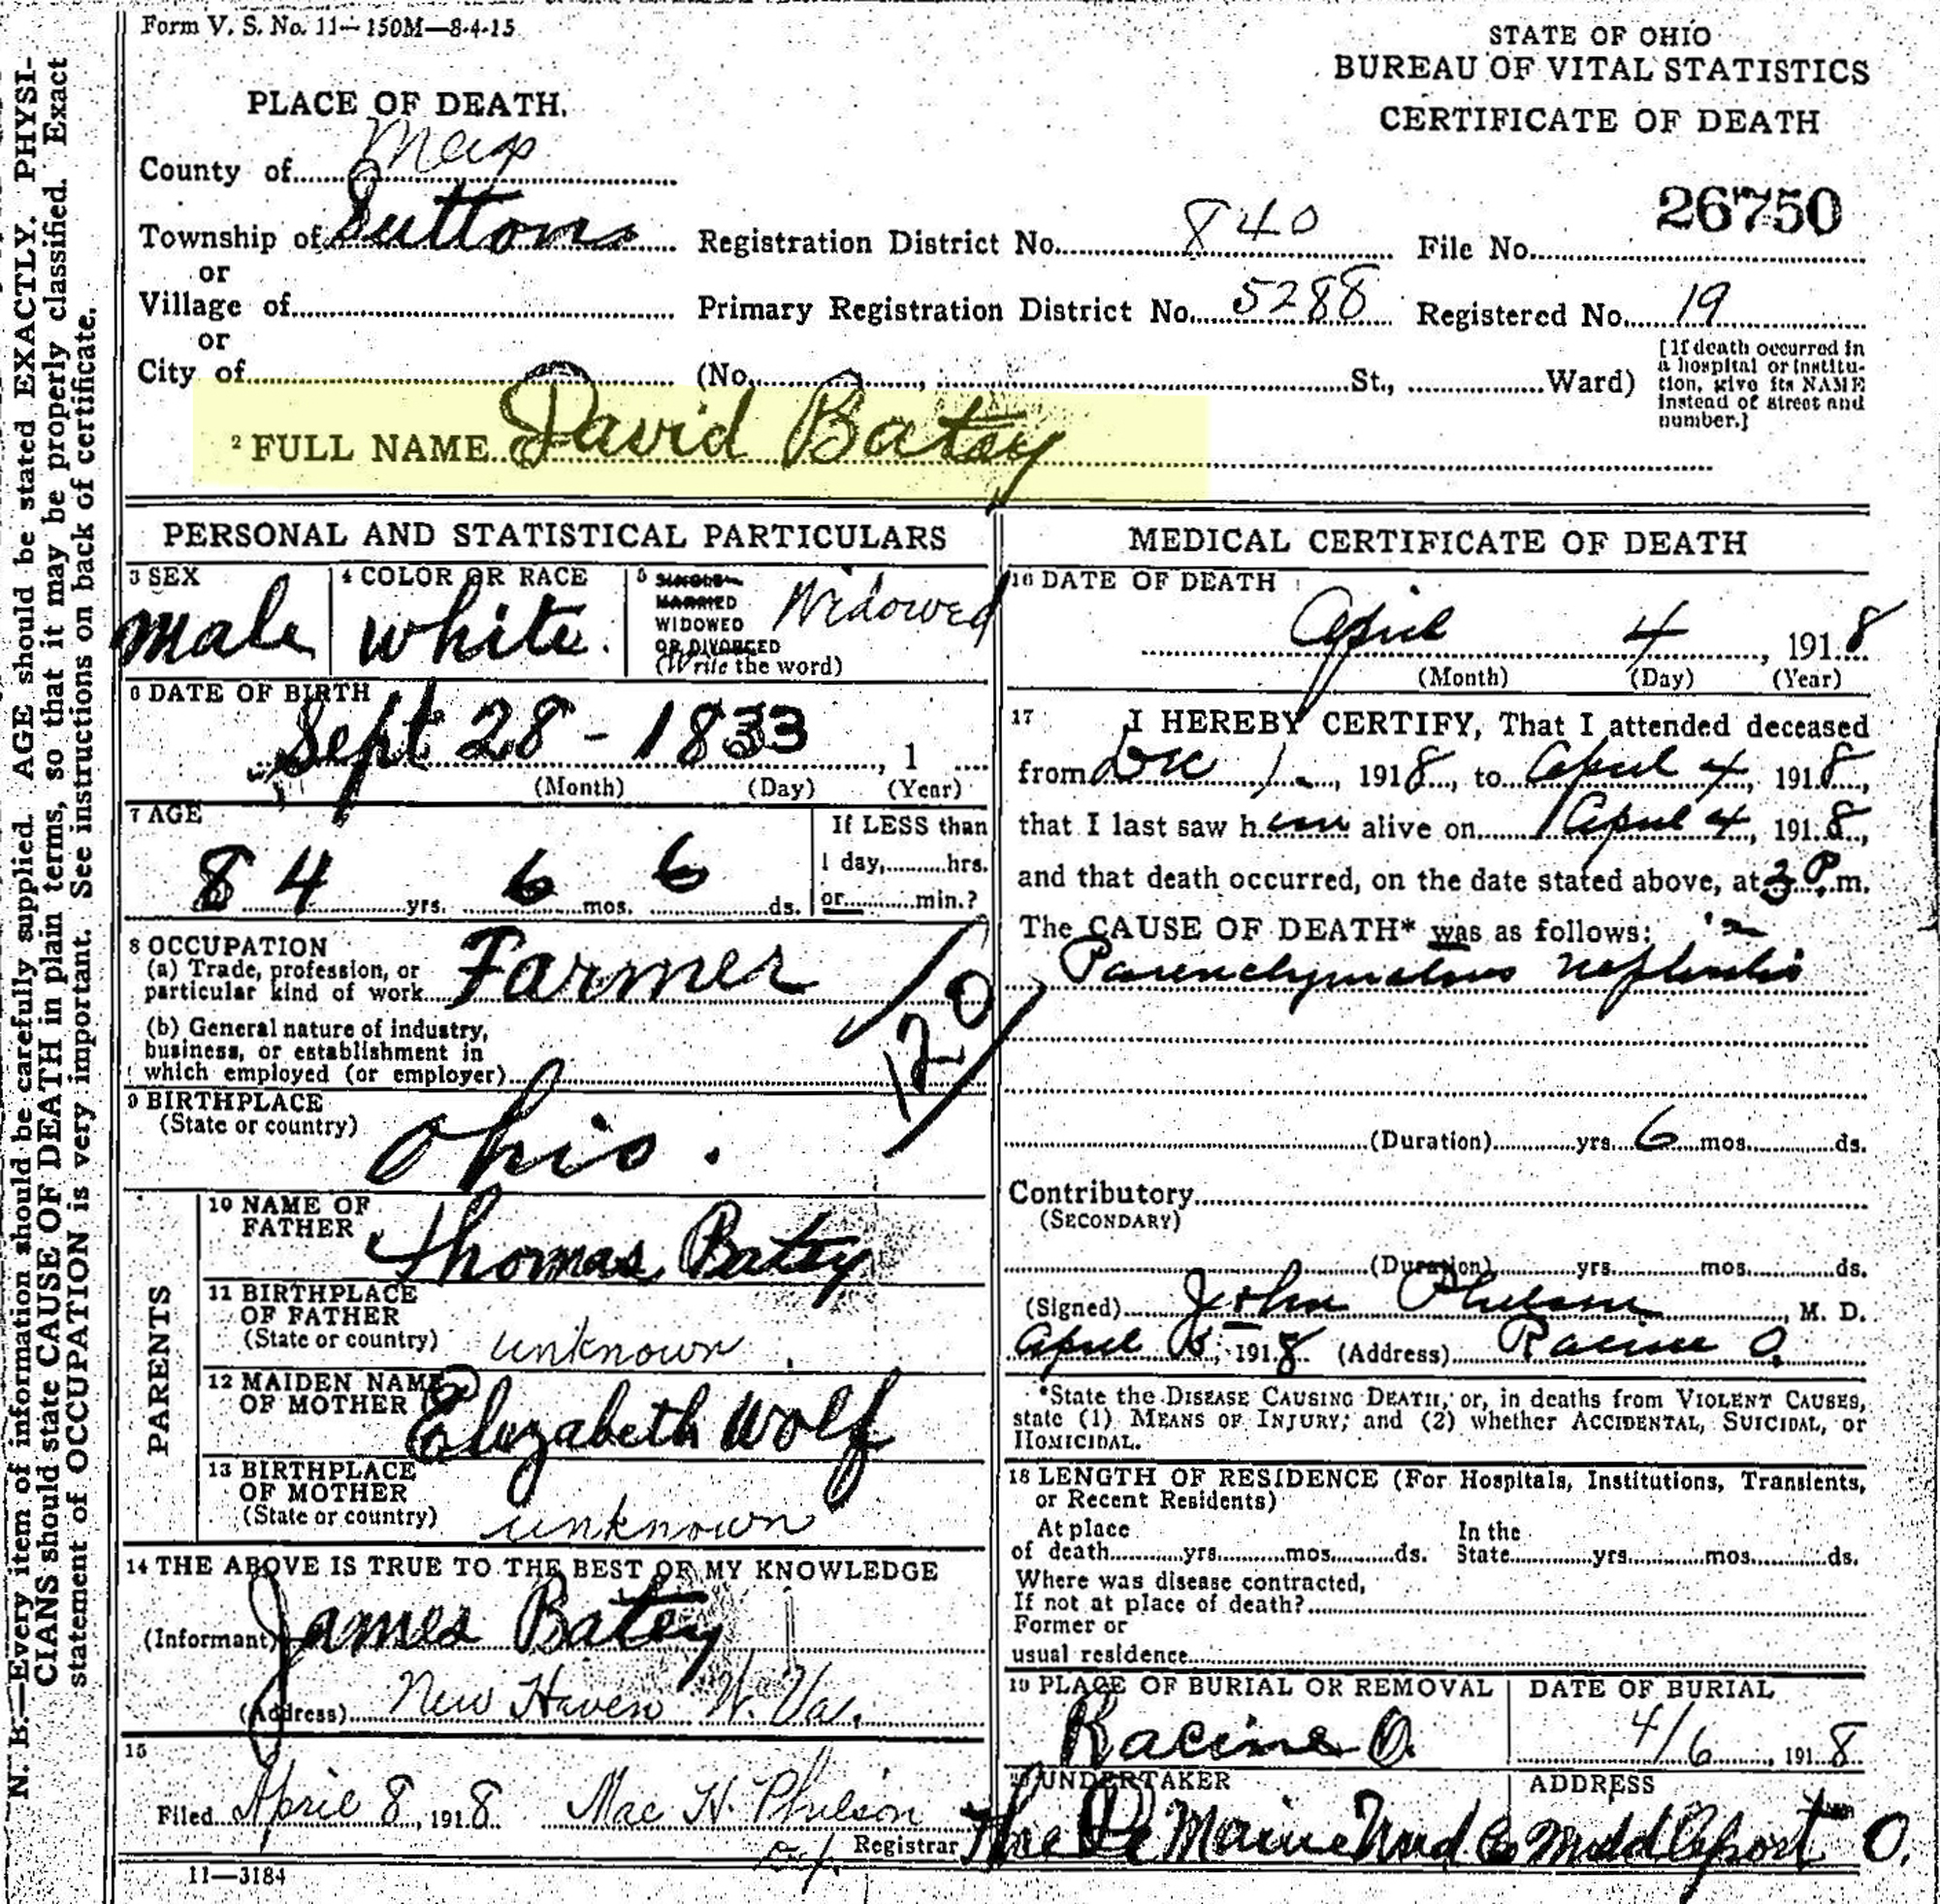 Form V. S. No. 11—150M—8-4-15
STATE OF OHIO
BUREAU OF VITAL STATISTICS
CERTIFICATE OF DEATH
PLACE OF DEATH.
County of Meigs
Township of Suttons
Registration District No. 840
File No. 26750
or
Village of
Primary Registration District No. 5288
Registered No. 19
or
City of (No. , St., Ward)
[If death occurred in
a hospital or institu-
tion, give its NAME
instead of street and
number.]
2 FULL NAME David Batey
PERSONAL AND STATISTICAL PARTICULARS
3 SEX
male
4 COLOR OR RACE
white.
5 SINGLE
MARRIED
WIDOWED
OR DIVORCED
(Write the word)
Widowed
6 DATE OF BIRTH
Sept 28 - 1833 , 1
(Month) (Day) (Year)
7 AGE
84 yrs. 6 mos. 6 ds.
If LESS than
1 day, hrs.
or min.?
8 OCCUPATION
(a) Trade, profession, or
particular kind of work Farmer
(b) General nature of industry,
business, or establishment in
which employed (or employer)
120
9 BIRTHPLACE
(State or country)
Ohio.
PARENTS
10 NAME OF
FATHER
Thomas Batey
11 BIRTHPLACE
OF FATHER
(State or country) unknown
12 MAIDEN NAME
OF MOTHER
Elizabeth Wolf
13 BIRTHPLACE
OF MOTHER
(State or country) unknown
14 THE ABOVE IS TRUE TO THE BEST OF MY KNOWLEDGE
(Informant) James Batey
(Address) New Haven W. Va.
15
Filed April 8, 1918 Mac H. Philson
Registrar
11—3184
MEDICAL CERTIFICATE OF DEATH
16 DATE OF DEATH
April 4, 1918
(Month) (Day) (Year)
17 I HEREBY CERTIFY, That I attended deceased
from Dec 1, 1918, to April 4, 1918,
that I last saw him alive on April 4, 1918,
and that death occurred, on the date stated above, at 3 P. m.
The CAUSE OF DEATH* was as follows:
Parenchymatous nephritis
(Duration) yrs. 6 mos. ds.
Contributory
(SECONDARY)
(Duration) yrs. mos. ds.
(Signed) John Philson, M. D.
April 5, 1918 (Address) Racine O.
*State the DISEASE CAUSING DEATH, or, in deaths from VIOLENT CAUSES,
state (1) MEANS OF INJURY; and (2) whether ACCIDENTAL, SUICIDAL, or
HOMICIDAL.
18 LENGTH OF RESIDENCE (For Hospitals, Institutions, Transients,
or Recent Residents)
At place
of death yrs. mos. ds.
In the
State yrs. mos. ds.
Where was disease contracted,
If not at place of death?
Former or
usual residence
19 PLACE OF BURIAL OR REMOVAL
Racine O.
DATE OF BURIAL
4/6, 1918
20 UNDERTAKER
ADDRESS
The De Maine Und. Co Middleport O.
N. B.—Every item of information should be carefully supplied. AGE should be stated EXACTLY. PHYSI-
CIANS should state CAUSE OF DEATH in plain terms, so that it may be properly classified. Exact
statement of OCCUPATION is very important. See instructions on back of certificate.